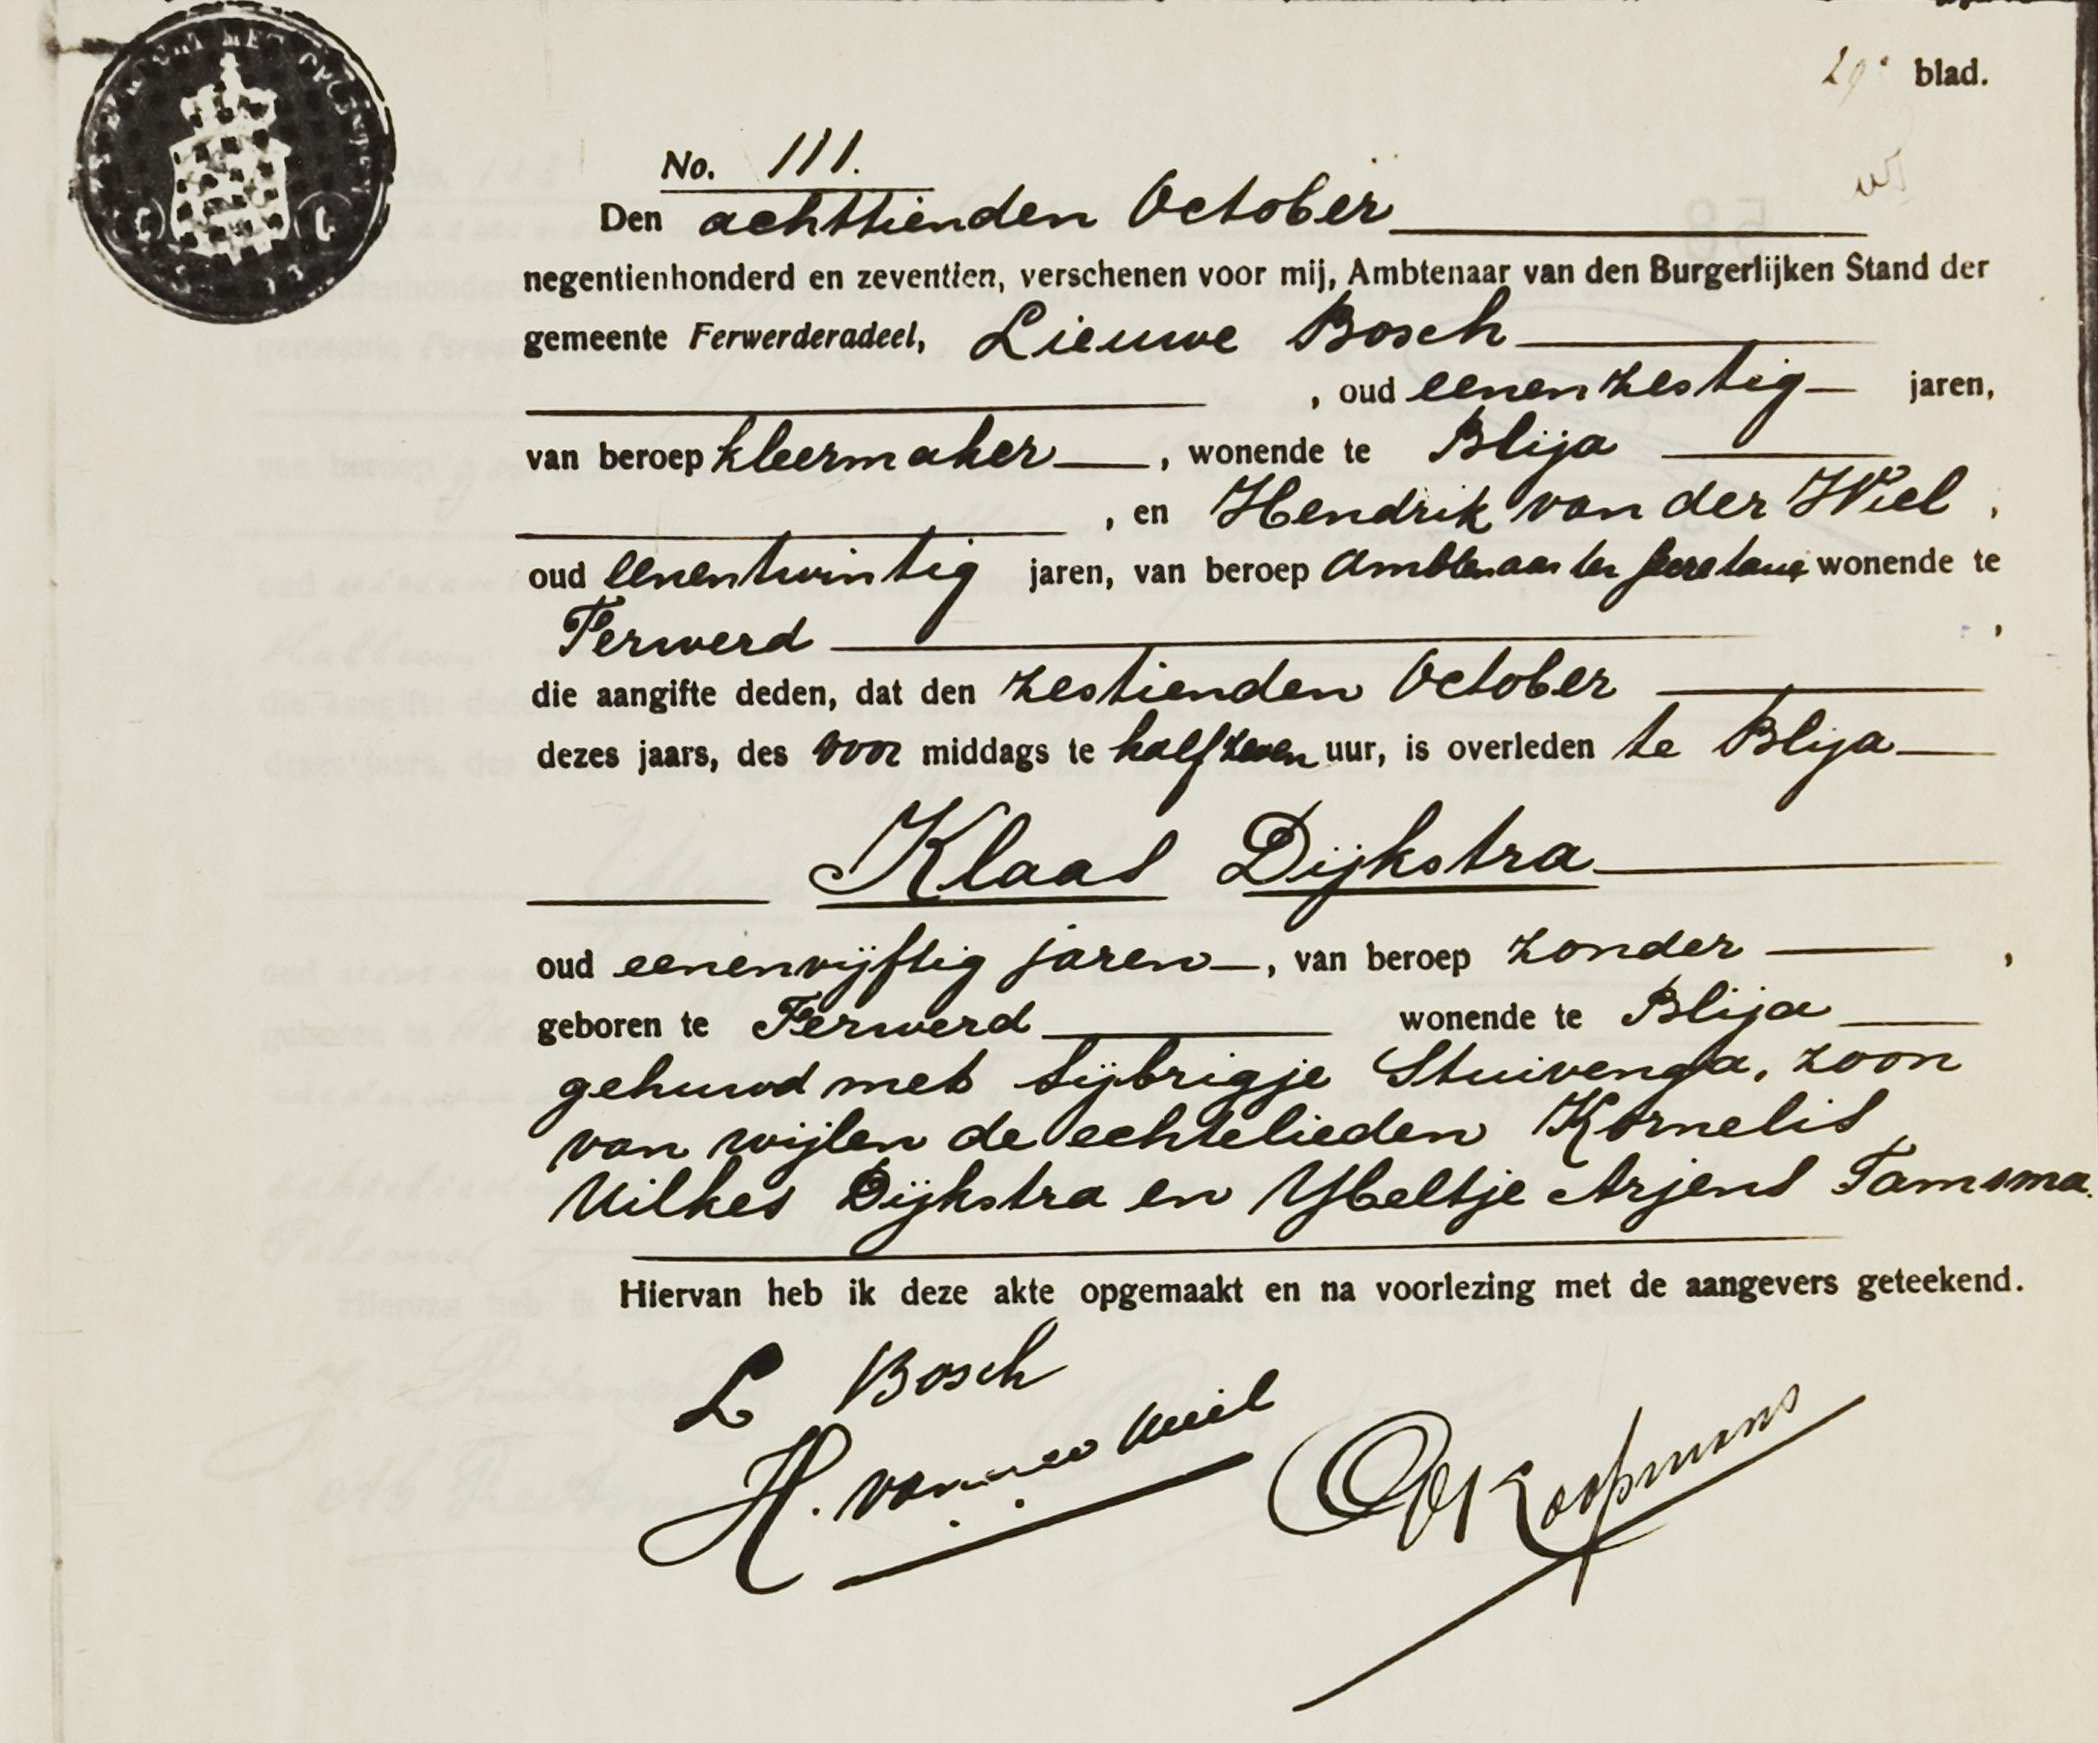 29e blad.
No. 111.
Den achttienden October
negentienhonderd en zeventien, verschenen voor mij, Ambtenaar van den Burgerlijken Stand der
gemeente Ferwerderadeel, Lieuwe Bosch
, oud eenenzestig jaren,
van beroep kleermaker, wonende te Blija
, en Hendrik van der Wiel,
oud eenentwintig jaren, van beroep Ambtenaar ter secretarie wonende te
Ferwerd,
die aangifte deden, dat den zestienden October
dezes jaars, des voor middags te half zeven uur, is overleden te Blija
Klaas Dijkstra
oud eenenvijftig jaren, van beroep zonder,
geboren te Ferwerd wonende te Blija
gehuwd met Sijbrigje Stuivenga, zoon
van wijlen de echtelieden Kornelis
Uilkes Dijkstra en Ybeltje Arjens Tamsma.
Hiervan heb ik deze akte opgemaakt en na voorlezing met de aangevers geteekend.
L Bosch
H. van der Wiel
Koopmans